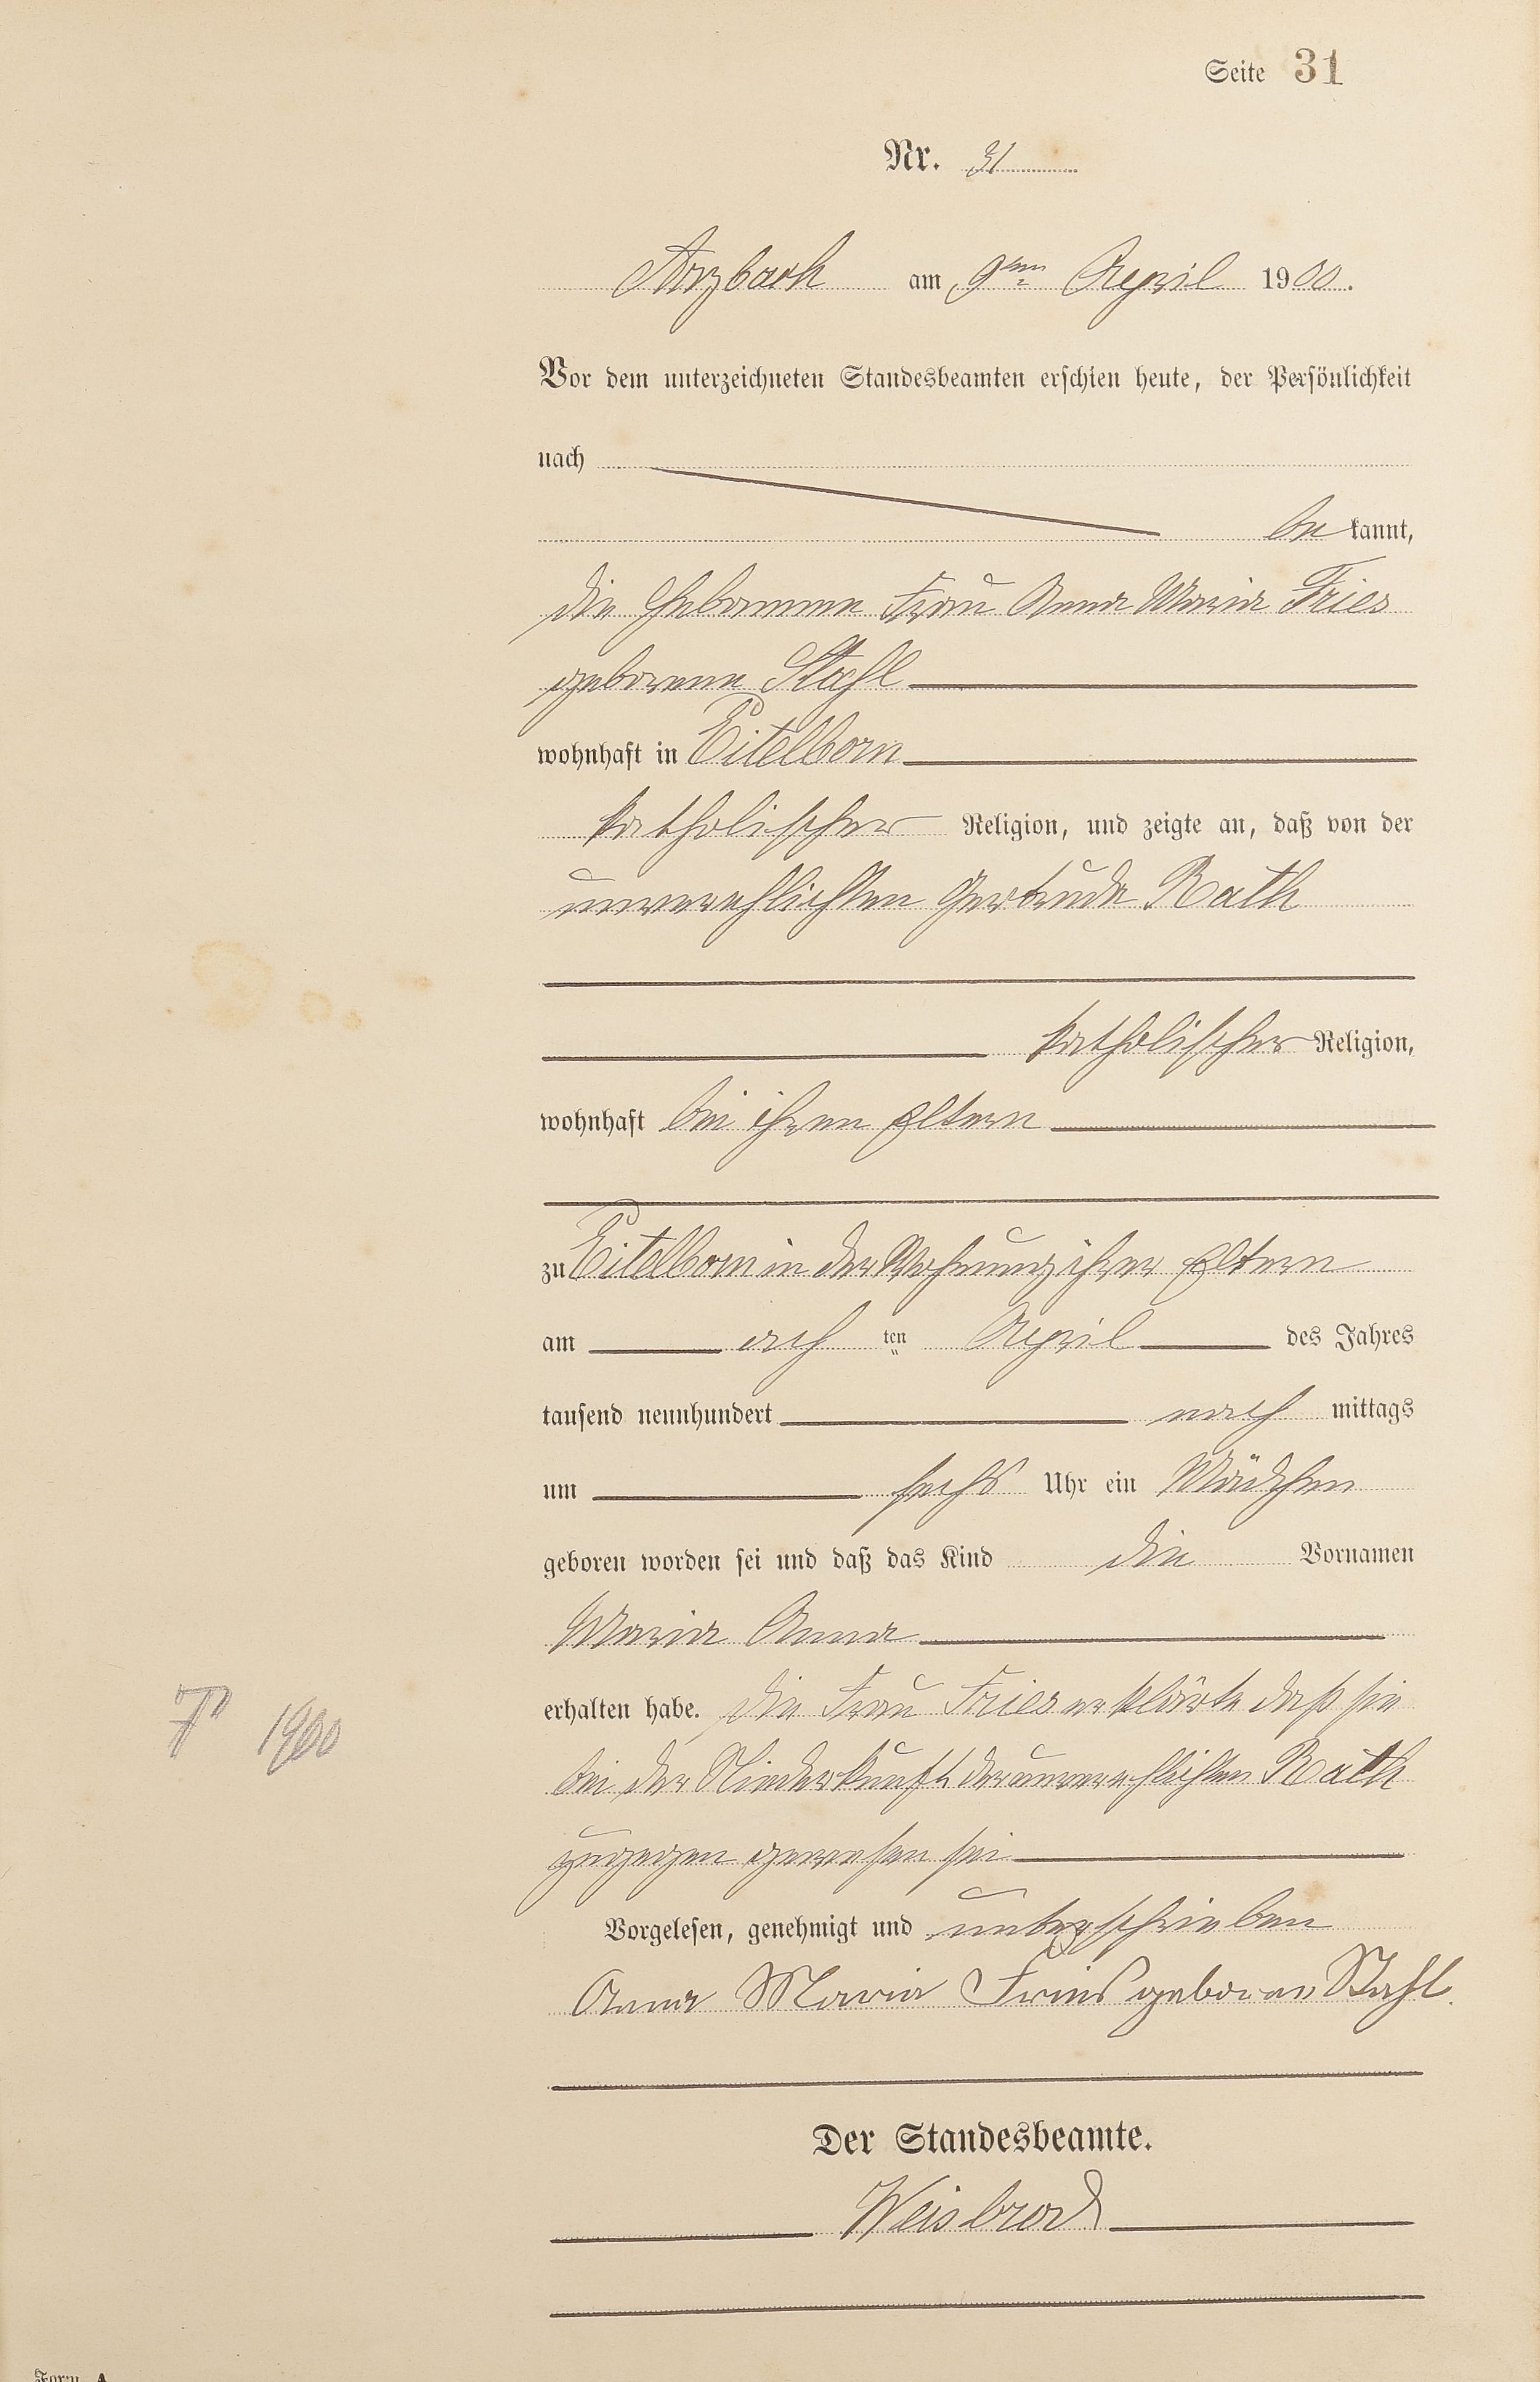 Seite 31
Nr. 31
Arzbach am 9ten April 1900.
Vor dem unterzeichneten Standesbeamten erschien heute, der Persönlichkeit
nach
be kannt,
die Hebamme Frau Anna Maria Fries
geborene Stahl
wohnhaft in Eitelborn
katholischer Religion, und zeigte an, daß von der
unverehlichten Gertrude Rath
katholischer Religion,
wohnhaft bei ihren Eltern
zu Eitelborn in der Wohnung ihrer Eltern
am ach ten April des Jahres
tausend neunhundert nach mittags
um sechs Uhr ein Mädchen
geboren worden sei und daß das Kind die Vornamen
Maria Anna
erhalten habe. Die Frau Fries erklärte daß sie
bei der Niederkunft der unverehlichten Rath
zugegen gewesen sei
1900
Vorgelesen, genehmigt und unterschrieben
Anna Maria Fries geboren Stahl.
Der Standesbeamte.
Weisbrod
Form. A